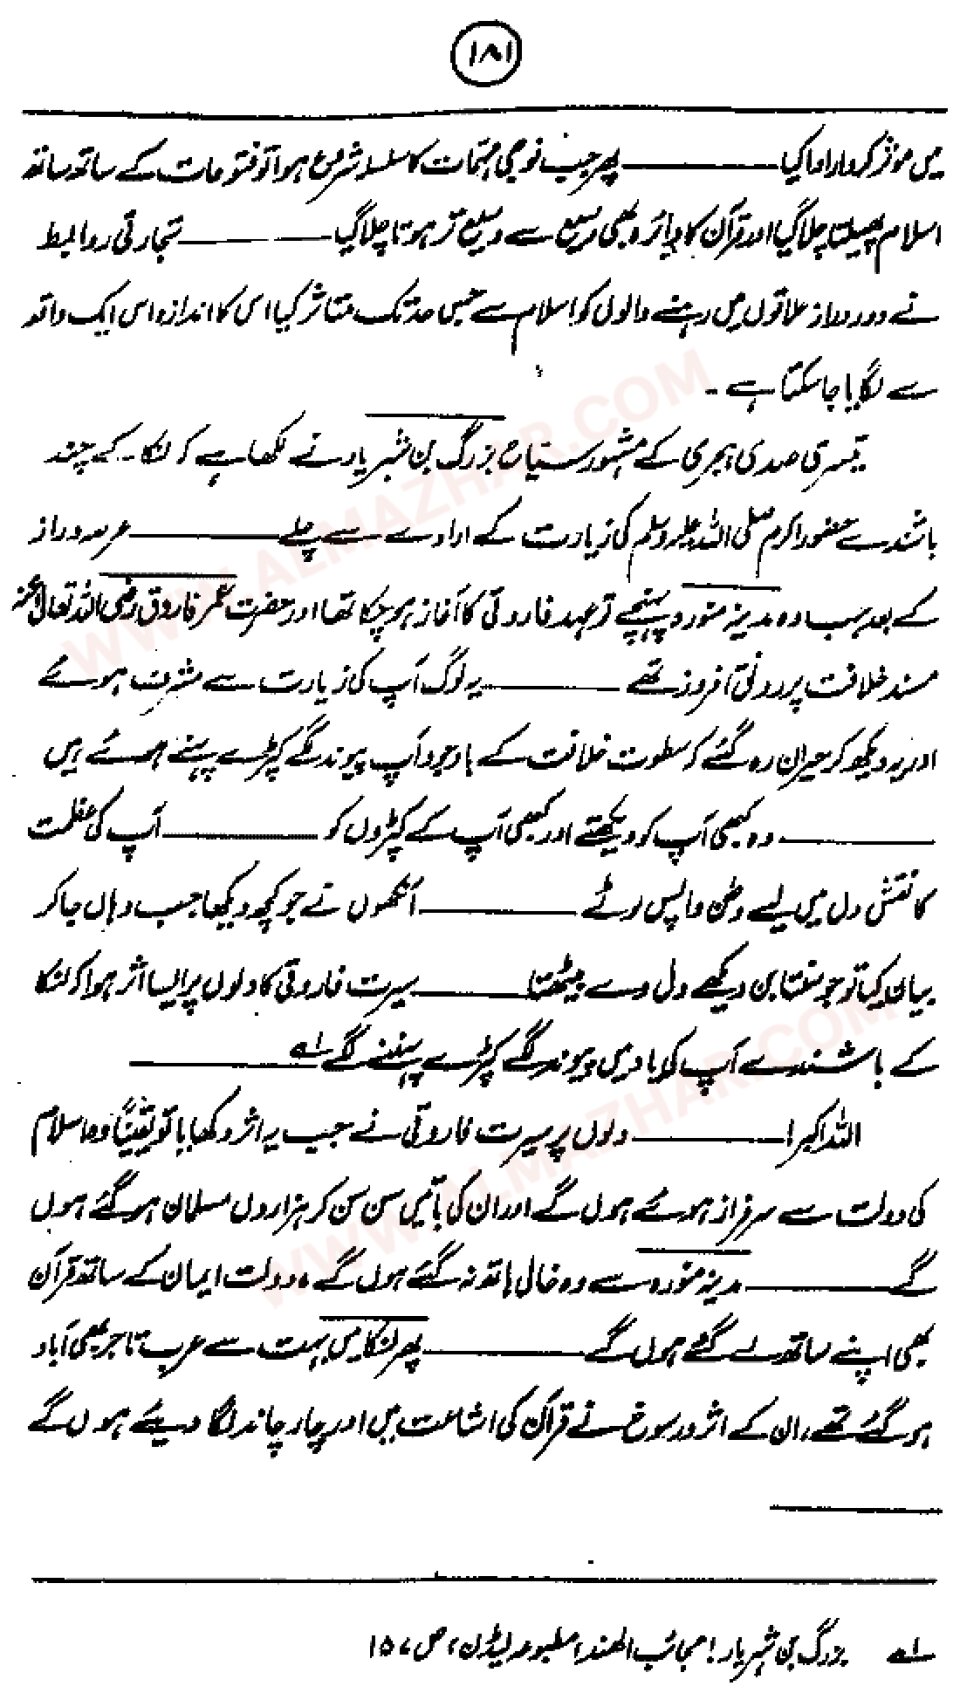 ۱۸۱
میں موثر کردار ادا کیا ــــــــ پھر جب فوجی مہمات کا سلسلہ شروع ہوا تو فتوحات کے ساتھ ساتھ
اسلام پھیلتا چلا گیا اور قرآن کا دائرہ بھی وسیع سے وسیع تر ہوتا چلا گیا ــــــــ تجارتی روابط
نے دور دراز علاقوں میں رہنے والوں کو اسلام سے جس حد تک متاثر کیا اس کا اندازہ اس ایک واقعہ
سے لگایا جا سکتا ہے ۔
تیسری صدی ہجری کے مشہور سیاح بزرگ بن شہریار نے لکھا ہے کہ لنکا ۔ کے چند
باشندے حضور اکرم صلی اللہ علیہ وسلم کی زیارت کے ارادے سے چلے ــــــــ عرصہ دراز
کے بعد جب وہ مدینہ منورہ پہنچے تو عہد فاروقی کا آغاز ہو چکا تھا اور حضرت عمر فاروق رضی اللہ تعالیٰ عنہ
مسند خلافت پر رونق افروز تھے ــــــــ یہ لوگ آپ کی زیارت سے مشرف ہوئے
اور یہ دیکھ کر حیران رہ گئے کہ سطوت خلافت کے باوجود آپ پیوند لگے کپڑے پہنے ہوئے ہیں
ــــــــ وہ کبھی آپ کو دیکھتے اور کبھی آپ کے کپڑوں کو ــــــــ آپ کی عظمت
کا نقش دل میں لیے وطن واپس لوٹے ــــــــ آنکھوں نے جو کچھ دیکھا جب وہاں جا کر
بیان کیا تو جو سنتا بن دیکھے دل دے بیٹھتا ــــــــ سیرت فاروقی کا دلوں پر ایسا اثر ہوا کہ لنکا
کے باشندے آپ کی یاد میں پیوند لگے کپڑے پہننے لگے ۱ے ــــــــ
اللہ اکبر! ــــــــ دلوں پر سیرت فاروقی نے جب یہ اثر دکھایا تو یقیناً وہ اسلام
کی دولت سے سرفراز ہوئے ہوں گے اور ان کی باتیں سن سن کر ہزاروں مسلمان ہو گئے ہوں
گے ــــــــ مدینہ منورہ سے وہ خالی ہاتھ نہ گئے ہوں گے ، دولت ایمان کے ساتھ قرآن
بھی اپنے ساتھ لے گئے ہوں گے ــــــــ پھر لنکا میں بہت سے عرب تاجر بھی آباد
ہو گئے تھے ، ان کے اثر و رسوخ نے قرآن کی اشاعت میں اور چار چاند لگا دیئے ہوں گے
ــــــــ
۱ے بزرگ بن شہریار ! عجائب الہند ، مطبوعہ لیڈن ، ص ۱۵۷
WWW.ALMAZHAR.COM
WWW.ALMAZHAR.COM